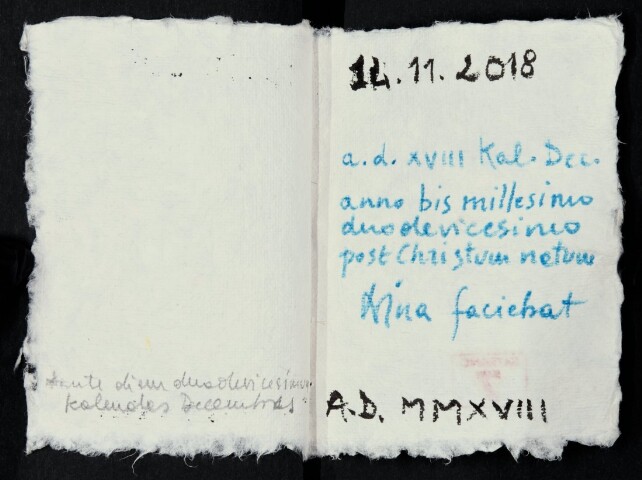 Ante diem duodevicesimum
Kalendas Decembres
14.11.2018
a.d. XVIII Kal. Dec.
anno bis millesimo
duodevicesimo
post Christum natum
Nina faciebat
A.D. MMXVIII